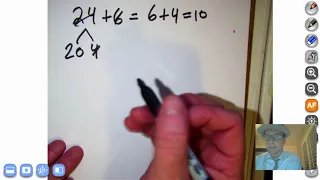 24 + 6 = 6 + 4 = 10
20 4
AF